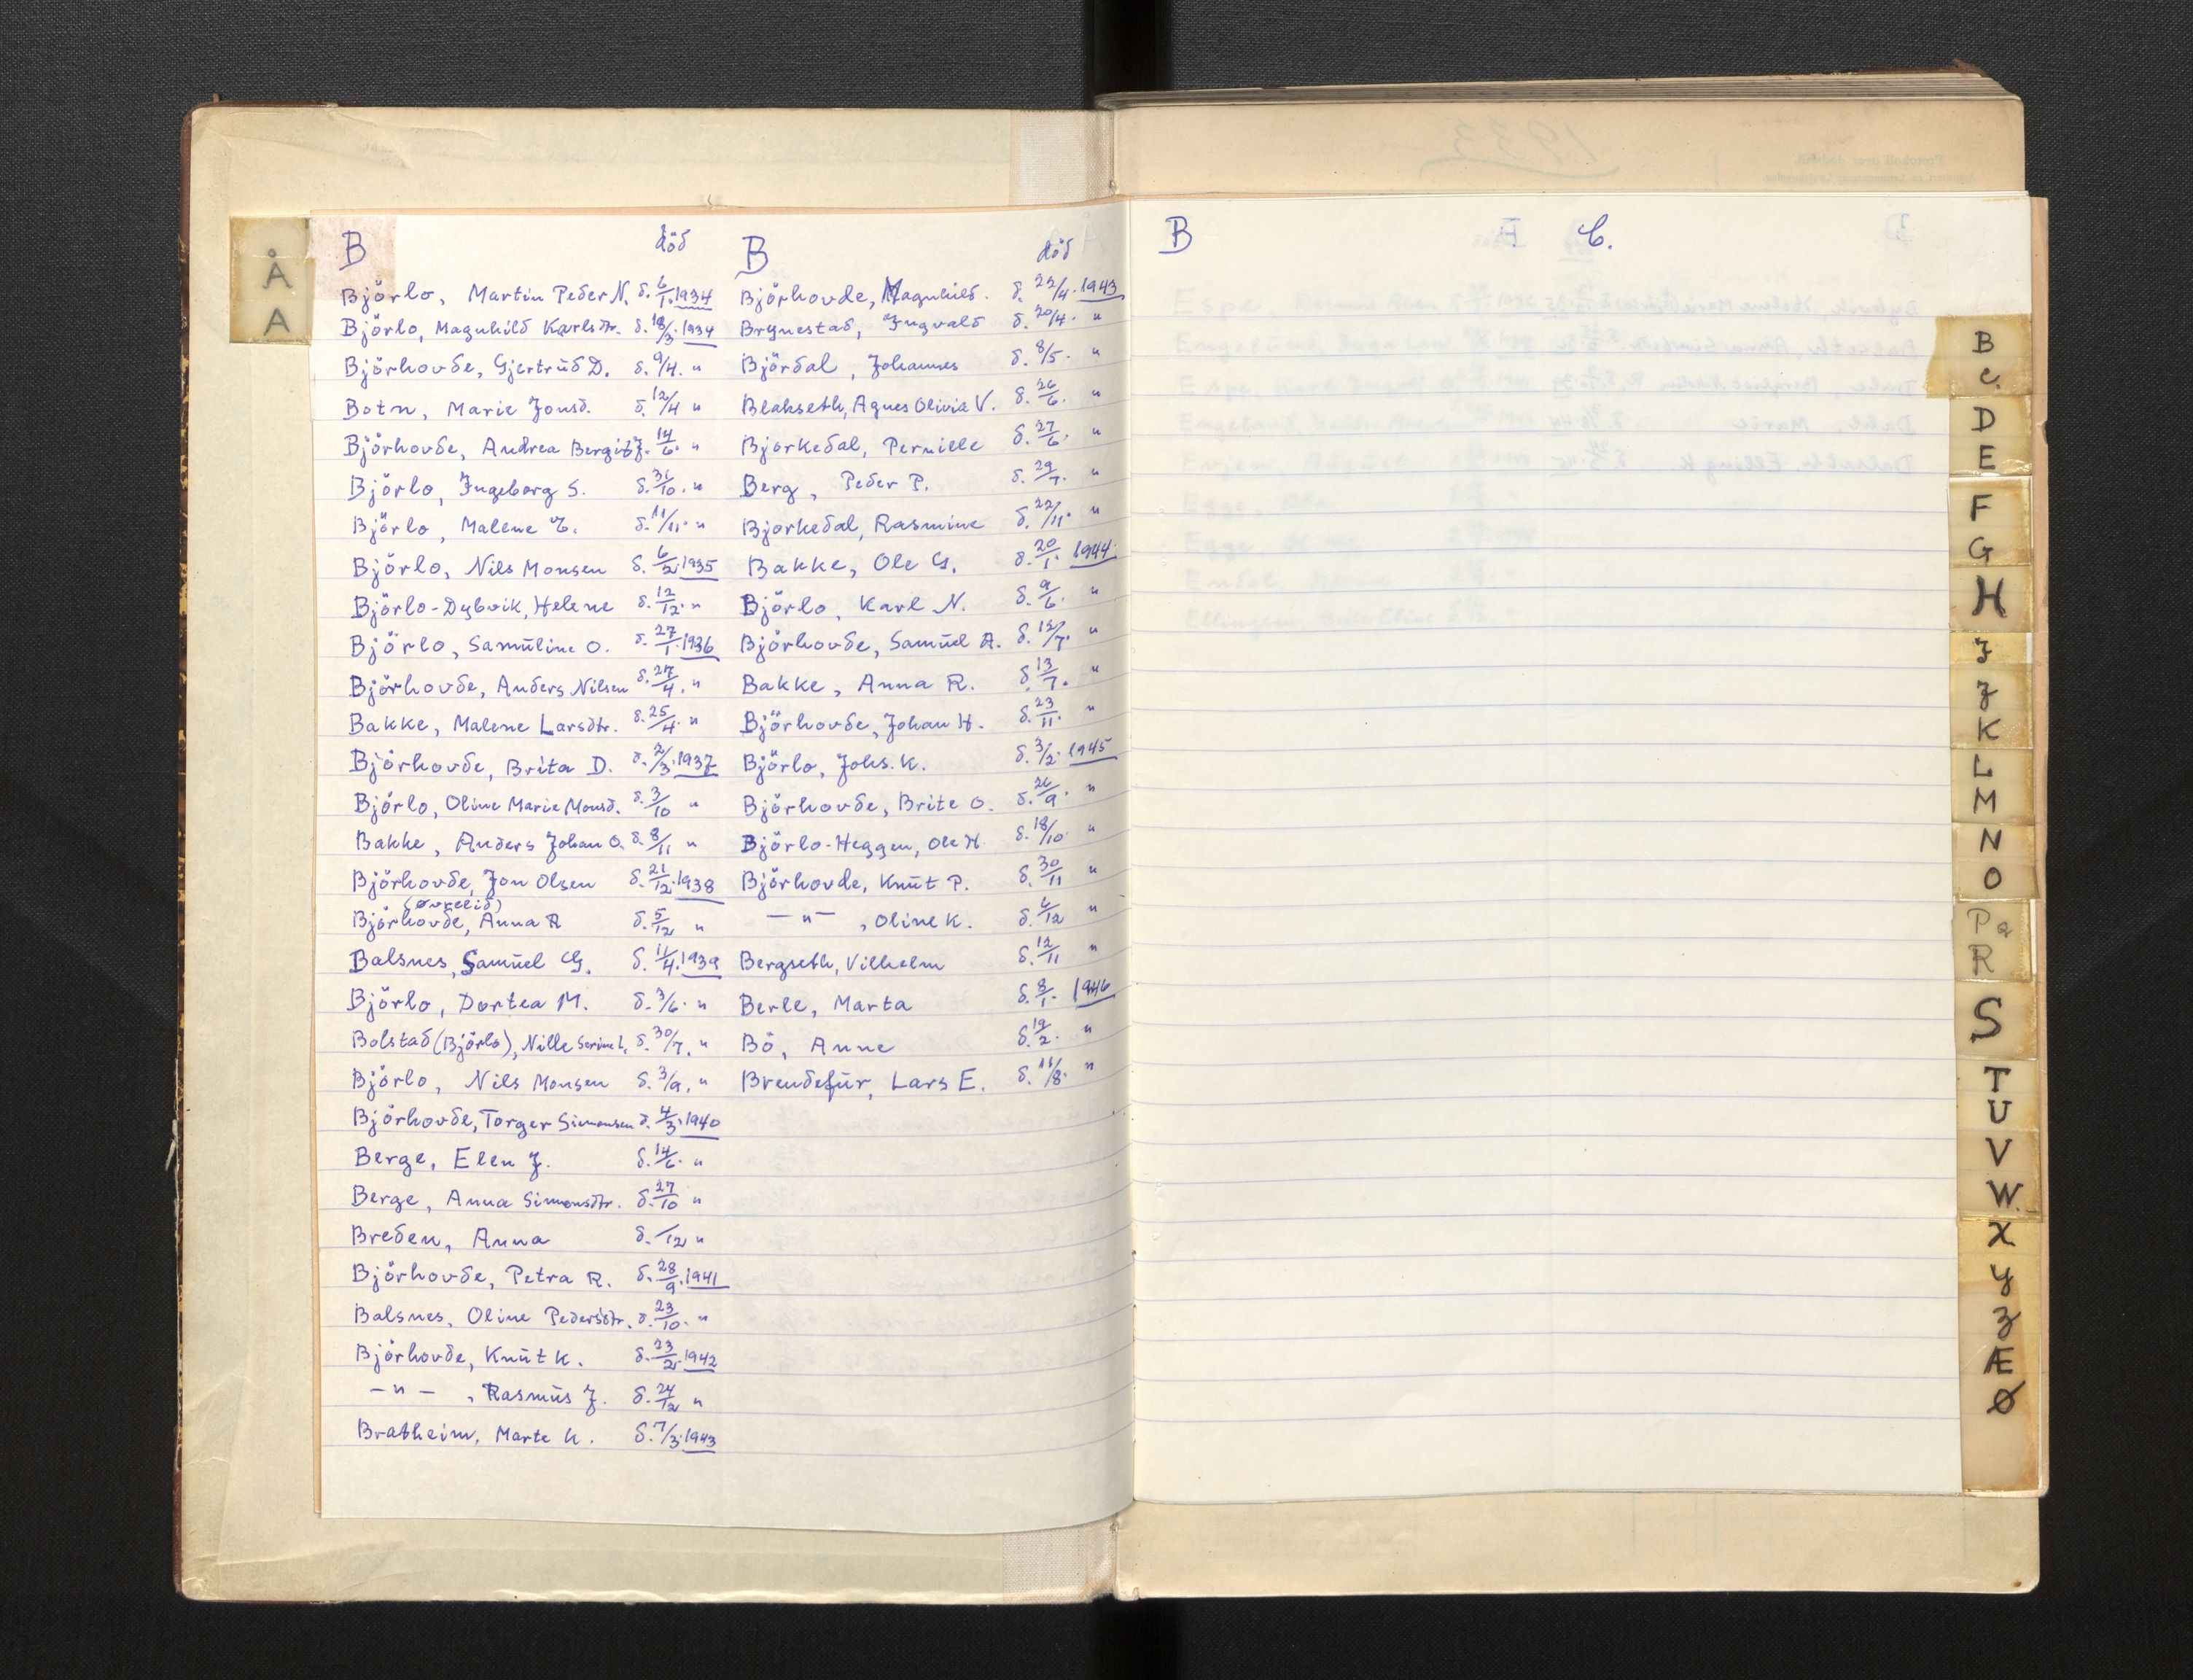 Å
A
B död
Björlo, Martin Peder N. d. 6/1. 1934
Björlo, Magnhild Karlsdtr. d. 18/3. 1934
Björhovde, Gjertrüd D. d. 9/4. "
Botn, Marie Jonsd. d. 12/4 "
Björhovde, Andrea Bergit J. 14/6. "
Björlo, Ingeborg S. d. 31/10. "
Björlo, Malene T. d. 11/11. "
Björlo, Nils Monsen d. 6/2. 1935
Björlo-Dybvik, Helene d. 12/12. "
Björlo, Samüline O. d. 27/1. 1936
Björhovde, Anders Nilsen d. 27/4. "
Bakke, Malene Larsdtr. d. 25/4. "
Björhovde, Brita D. d. 2/3. 1937
Björlo, Oline Marie Monsd. d. 3/10 "
Bakke, Anders Johan O. d. 8/11 "
Björhovde, Jon Olsen d. 21/12. 1938
(Øvrelid)
Björhovde, Anna R d. 5/12 "
Balsnes, Samüel G. d. 11/4. 1939
Björlo, Dortea M. d. 3/6. "
Bolstad (Björlo), Nille Serine L. d. 30/7. "
Björlo, Nils Monsen d. 3/9. "
Björhovde, Torger Simonsen d. 4/3. 1940
Berge, Elen J. d. 14/6. "
Berge, Anna Simonsdtr. d. 27/10 "
Breden, Anna d. /12 "
Björhovde, Petra R. d. 28/9. 1941
Balsnes, Oline Pedersdtr. d. 23/10. "
Björhovde, Knüt K. d. 23/2. 1942
— " — , Rasmüs J. d. 24/12 "
Bratheim, Marte K. d. 7/3. 1943
B död
Björhovde, Magnhild. d. 22/4. 1943
Brynestad, Ingvald d. 20/4. "
Björdal, Johannes d. 8/5. "
Blakseth, Agnes Olivia V. d. 26/6. "
Bjorkedal, Pernille d. 27/6. "
Berg, Peder P. d. 29/7. "
Bjorkedal, Rasmine d. 22/11. "
Bakke, Ole G. d. 20/1. 1944
Björlo, Karl N. d. 9/6. "
Björhovde, Samüel A. d. 12/7. "
Bakke, Anna R. d. 13/7. "
Björhovde, Johan H. d. 23/11. "
Björlo, Johs. K. d. 3/2. 1945
Björhovde, Brite O. d. 26/9. "
Björlo-Heggen, Ole H. d. 18/10 "
Björhovde, Knüt P. d. 30/11 "
— " — , Oline K. d. 6/12 "
Bergseth, Vilhelm d. 12/11 "
Berle, Marta d. 8/1. 1946
Bö, Anne d. 19/2. "
Brendefür, Lars E. d. 11/8. "
B C.
B
C.
D
E
F
G
H
I
J
K
L
M
N
O
P Q
R
S
T
U
V
W.
X
Y
Z
Æ
Ø